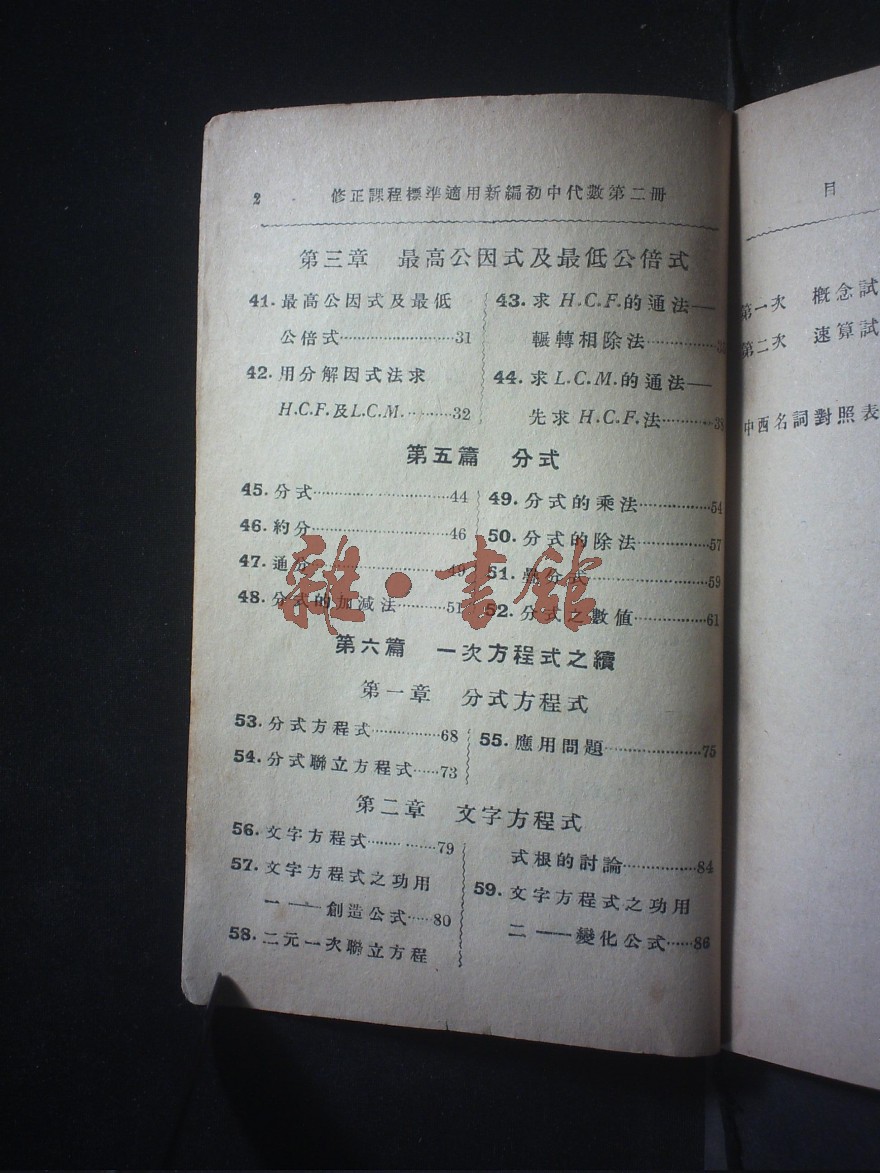 2 修正課程標準適用新編初中代數第二冊
第三章 最高公因式及最低公倍式
41.最高公因式及最低
公倍式……………31
42.用分解因式法求
H.C.F.及L.C.M.………32
43.求H.C.F.的通法——
輾轉相除法…………
44.求L.C.M.的通法——
先求H.C.F.法………38
第五篇 分式
45.分式……………………44
46.約分……………………46
47.通分……………………49
48.分式的加減法………51
49.分式的乘法…………54
50.分式的除法…………57
51.疊分式………………59
52.分式之數値…………61
第六篇 一次方程式之續
第一章 分式方程式
53.分式方程式…………68
54.分式聯立方程式……73
55.應用問題……………75
第二章 文字方程式
56.文字方程式…………79
57.文字方程式之功用
一——創造公式……80
58.二元一次聯立方程
式根的討論…………84
59.文字方程式之功用
二——變化公式……86
目
第一次 概念試
第二次 速算試
中西名詞對照表
雜·書館